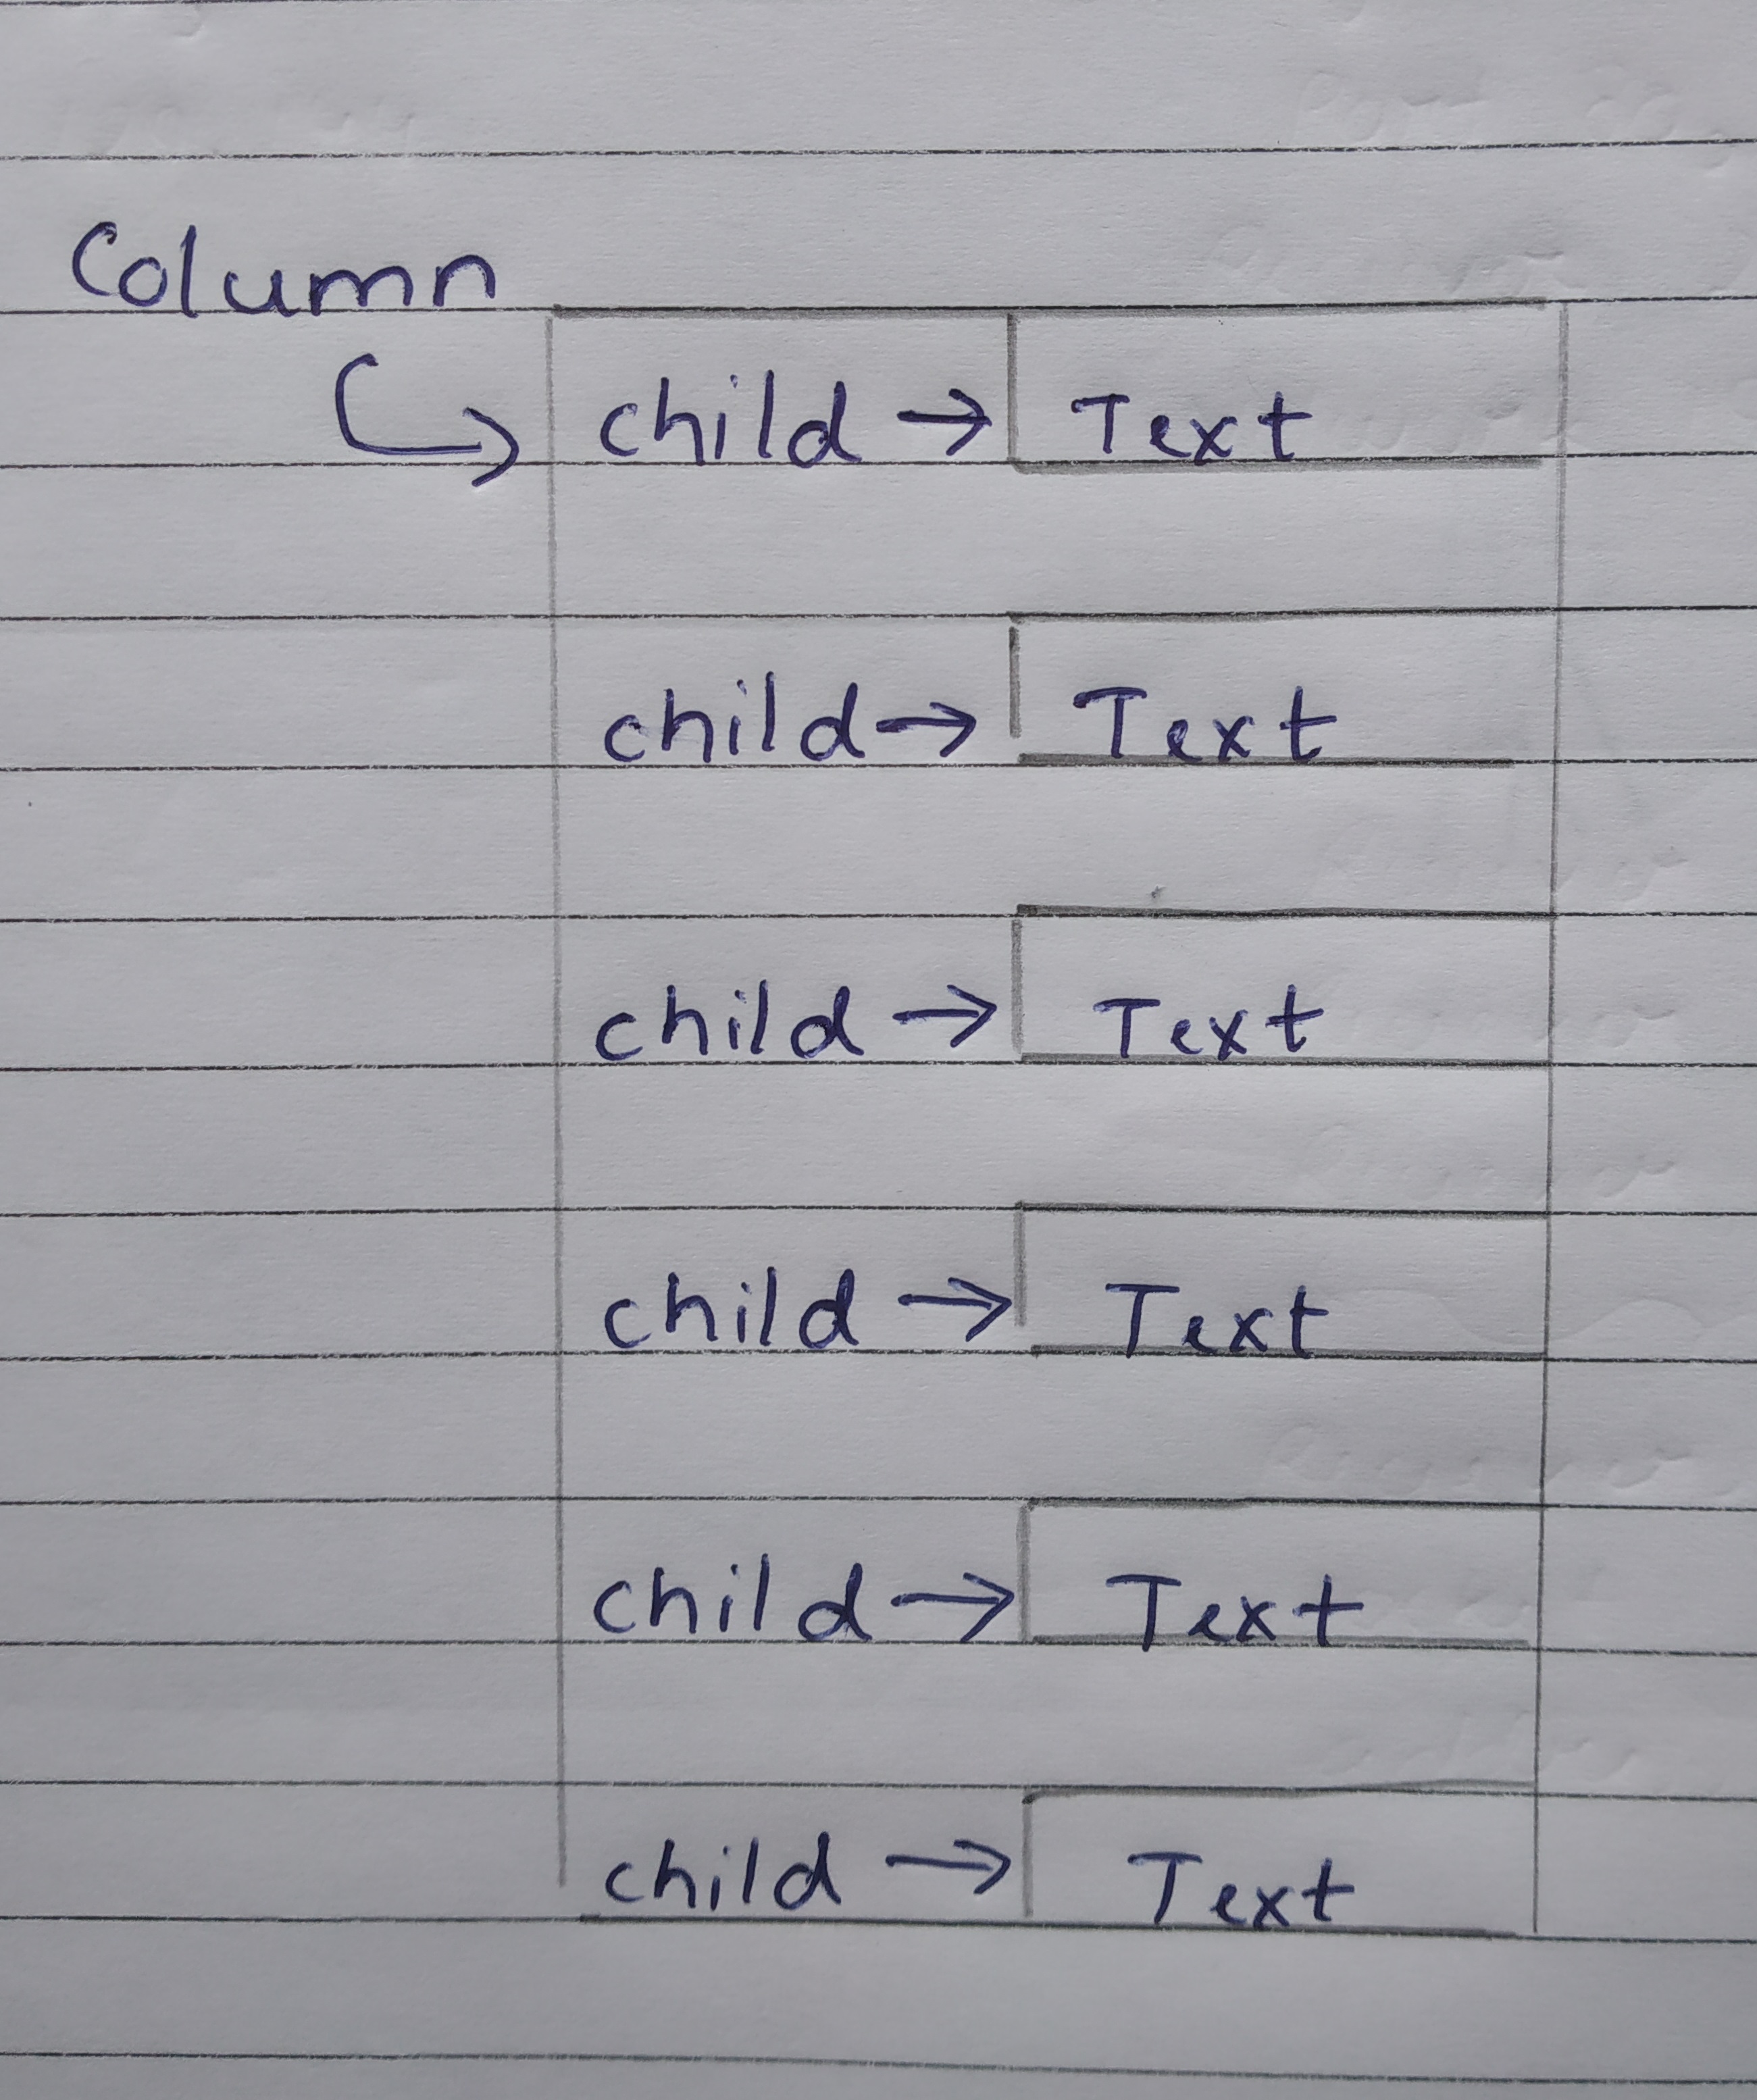 Column
child → Text
child → Text
child → Text
child → Text
child → Text
child → Text